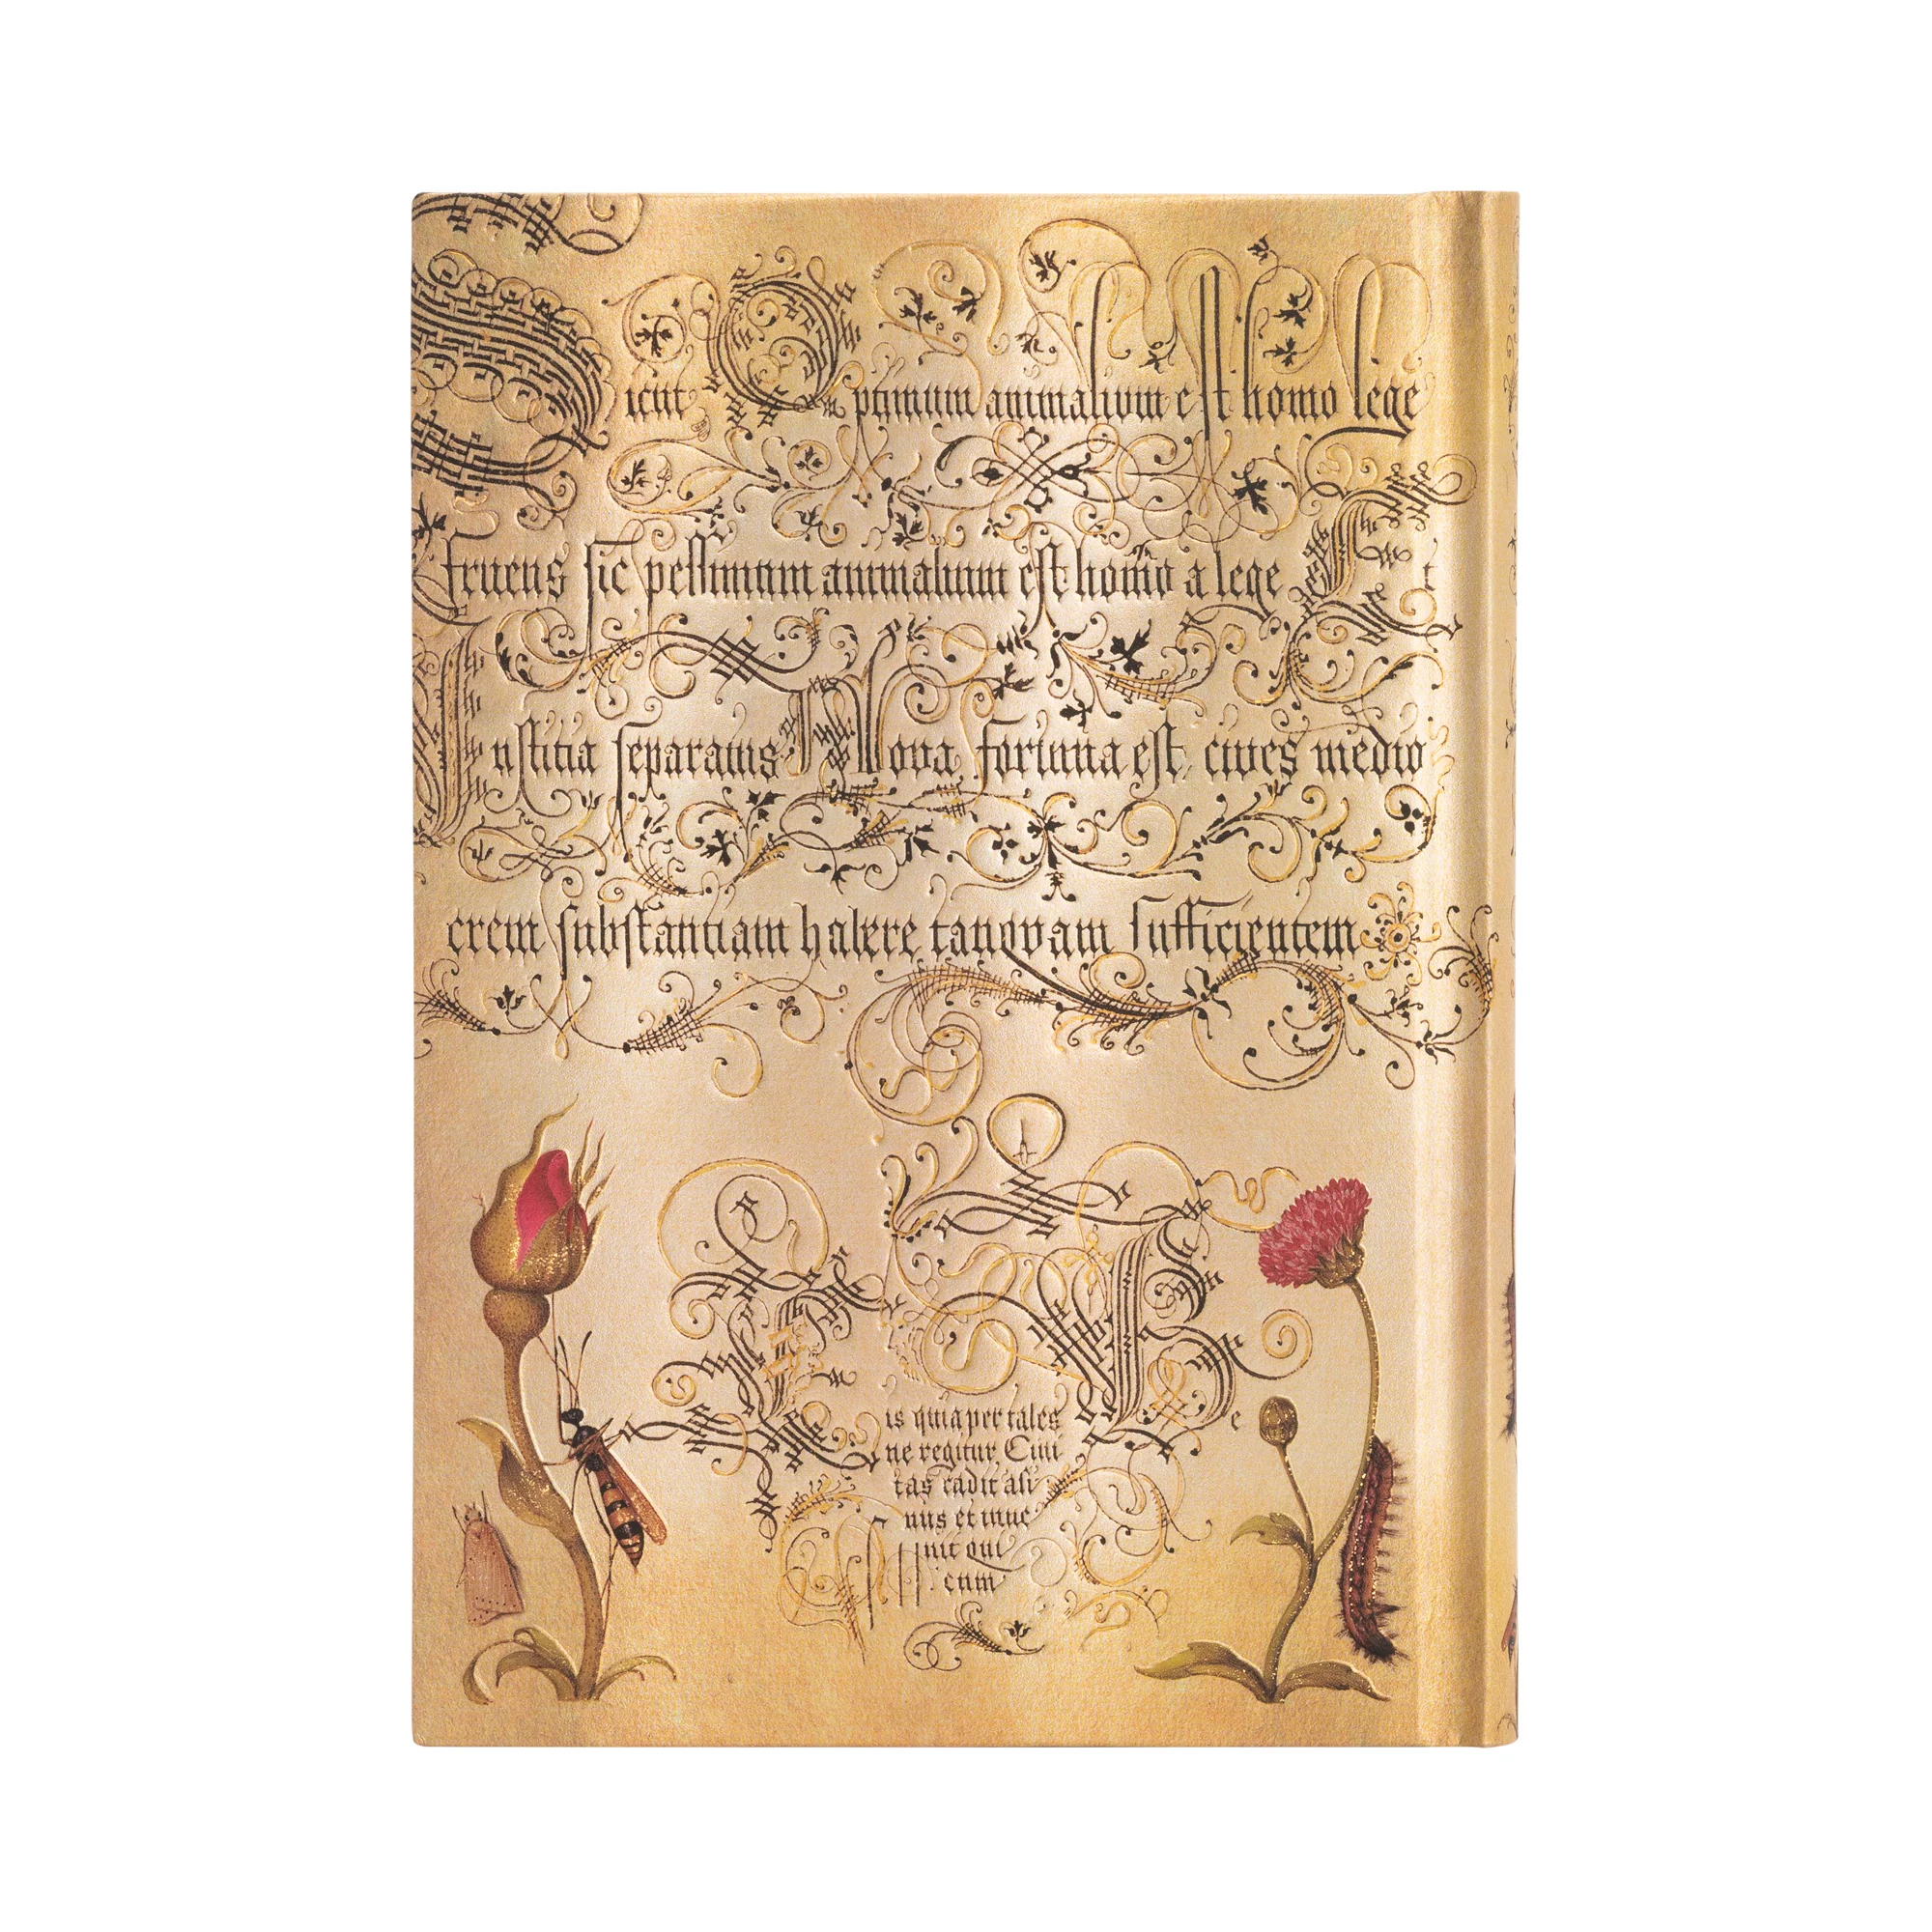 Sicut Optimum animalium est homo lege
fruens sic pessimum animalium est homo a lege Et
Iustitia separatus Nova fortuna est, cives medio
crem substantiam habere tanqvam sufficientem
is quia per tales Be
ne regitur Civi
tas cadit asi
nus et inve
nit qui
cum